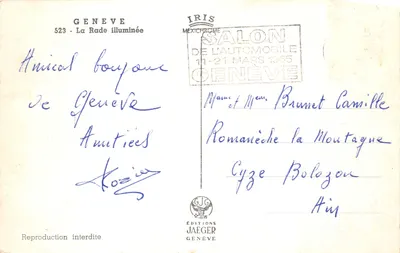 GENEVE
523 - La Rade illuminée
IRIS
MEXICHROME
SALON
DE L'AUTOMOBILE
11-21 MARS 1965
GENEVE
Amical bonjour
de Genève
Amitiés
Brunet Camille
Romanèche la Montagne
Cyze Bolozon
Ain
EDITIONS
JAEGER
GENEVE
Reproduction interdite